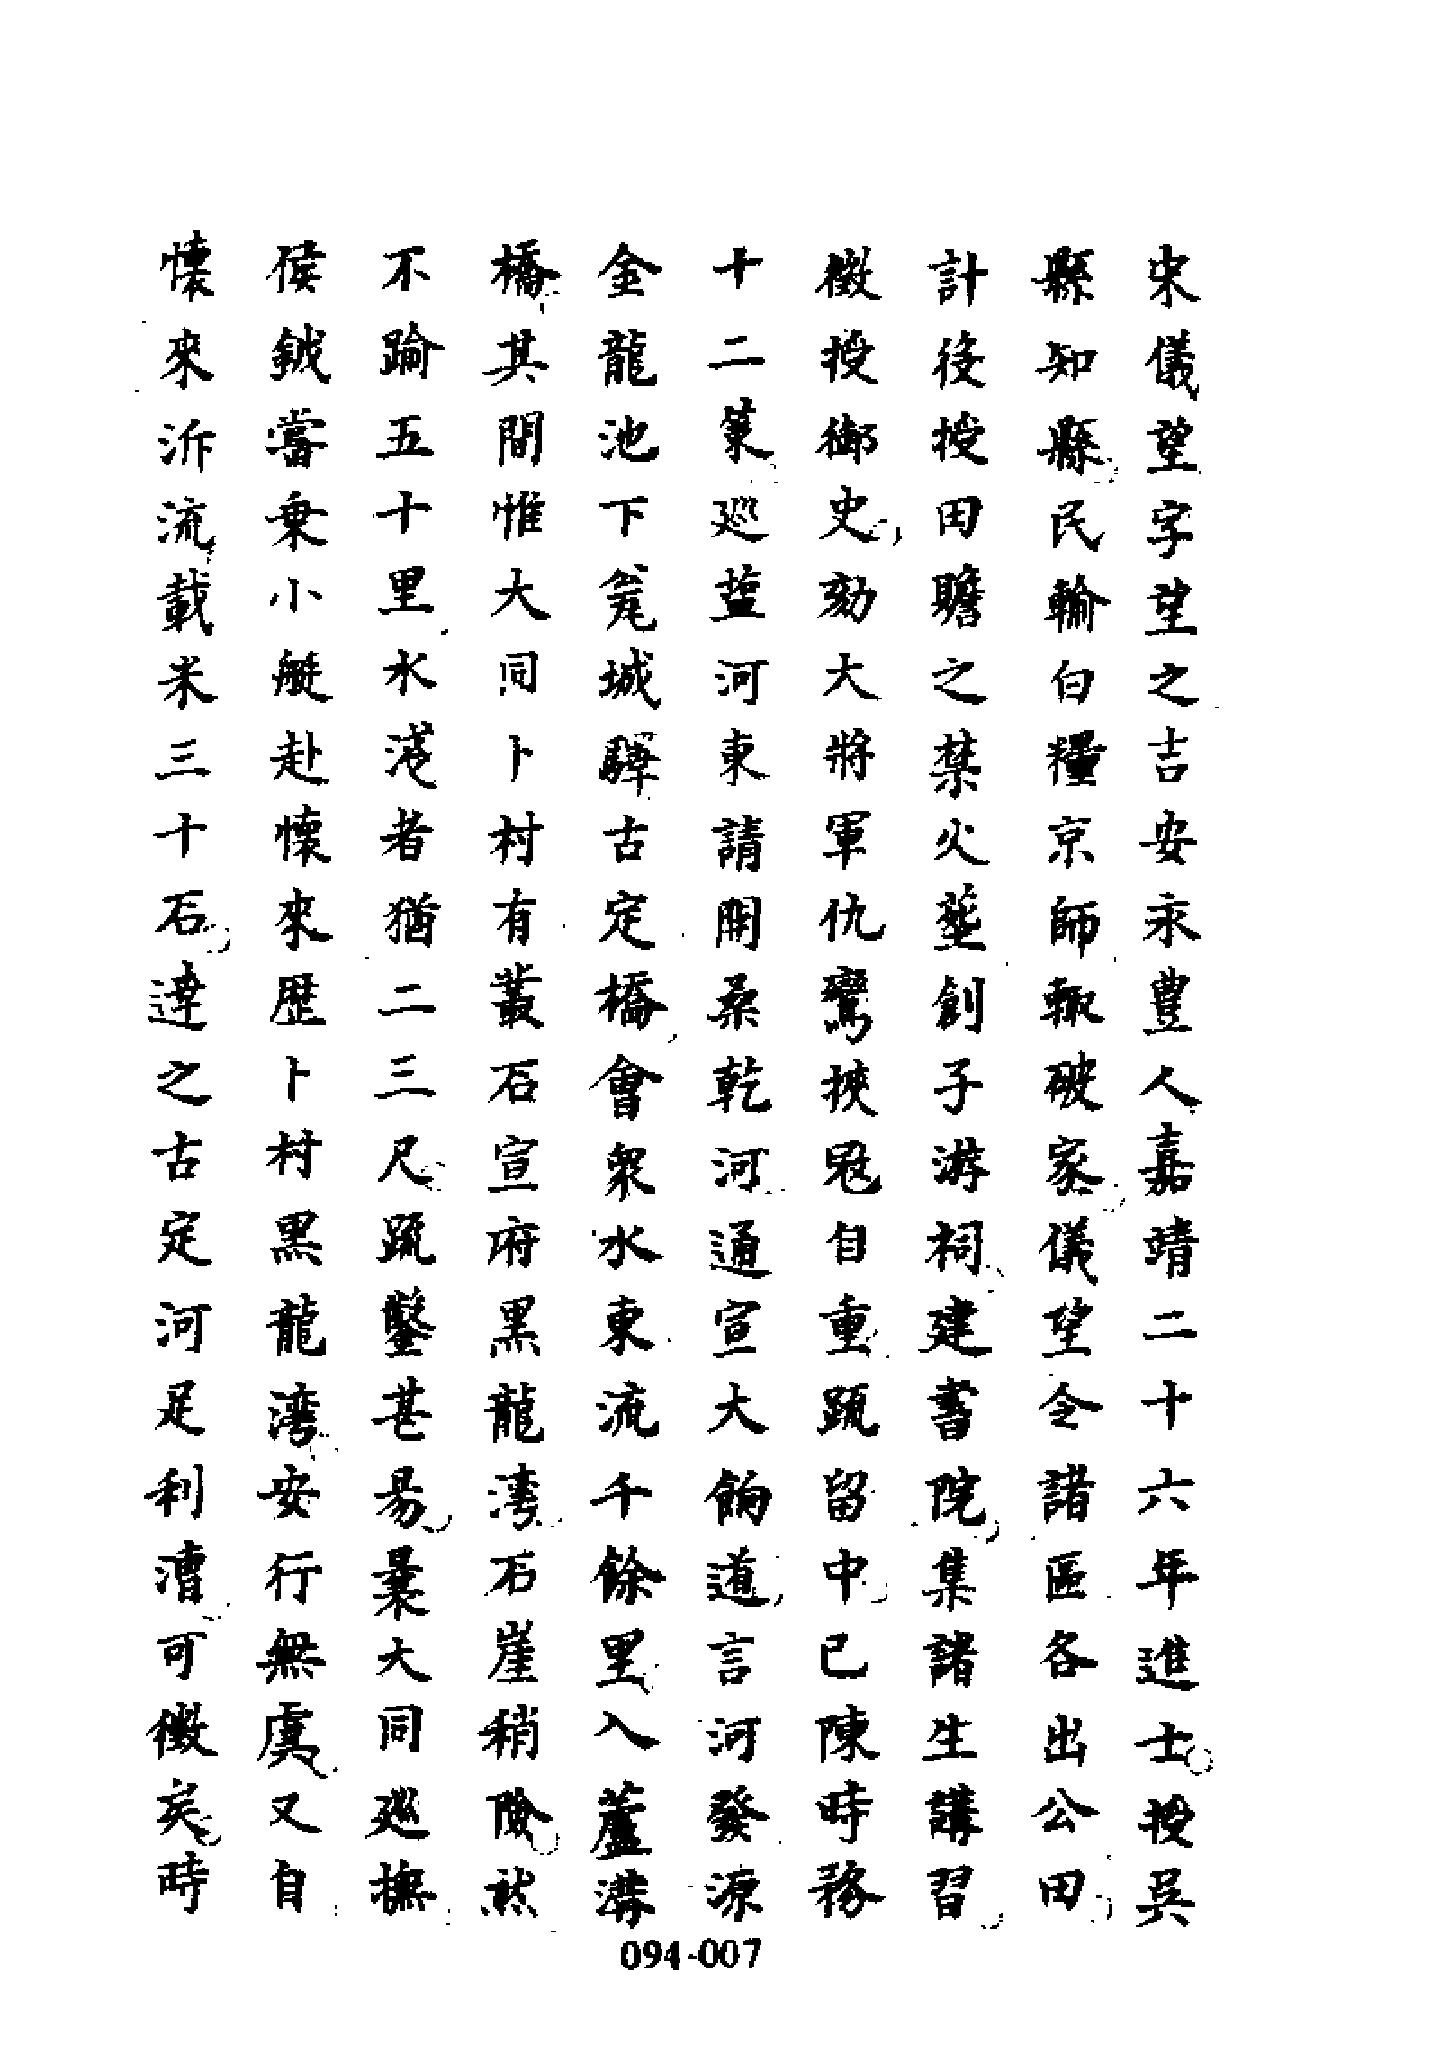 宋儀望字望之吉安永豊人嘉靖二十六年進士授吳
縣知縣縣民輸白糧京師輒破家儀望令諸區各出公田
計後授田贍之禁火塟創子游祠建書院集諸生講習
徵授御史劾大將軍仇鸞挾冦自重疏留中已陳時務
十二策巡鹽河東請開桑乾河通宣大餉道言河發源
金龍池下瓮城驛古定橋會衆水東流千餘里入蘆溝
橋其間惟大同卜村有叢石宣府黒龍湾石崖稍險然
不踰五十里水淺者猶二三尺疏鑿甚易曩大同巡撫
侯鉞嘗乗小艇赴懐來歴卜村黒龍湾安行無虞又自
懐來泝流載米三十石達之古定河足利漕可徵矣時
094-007